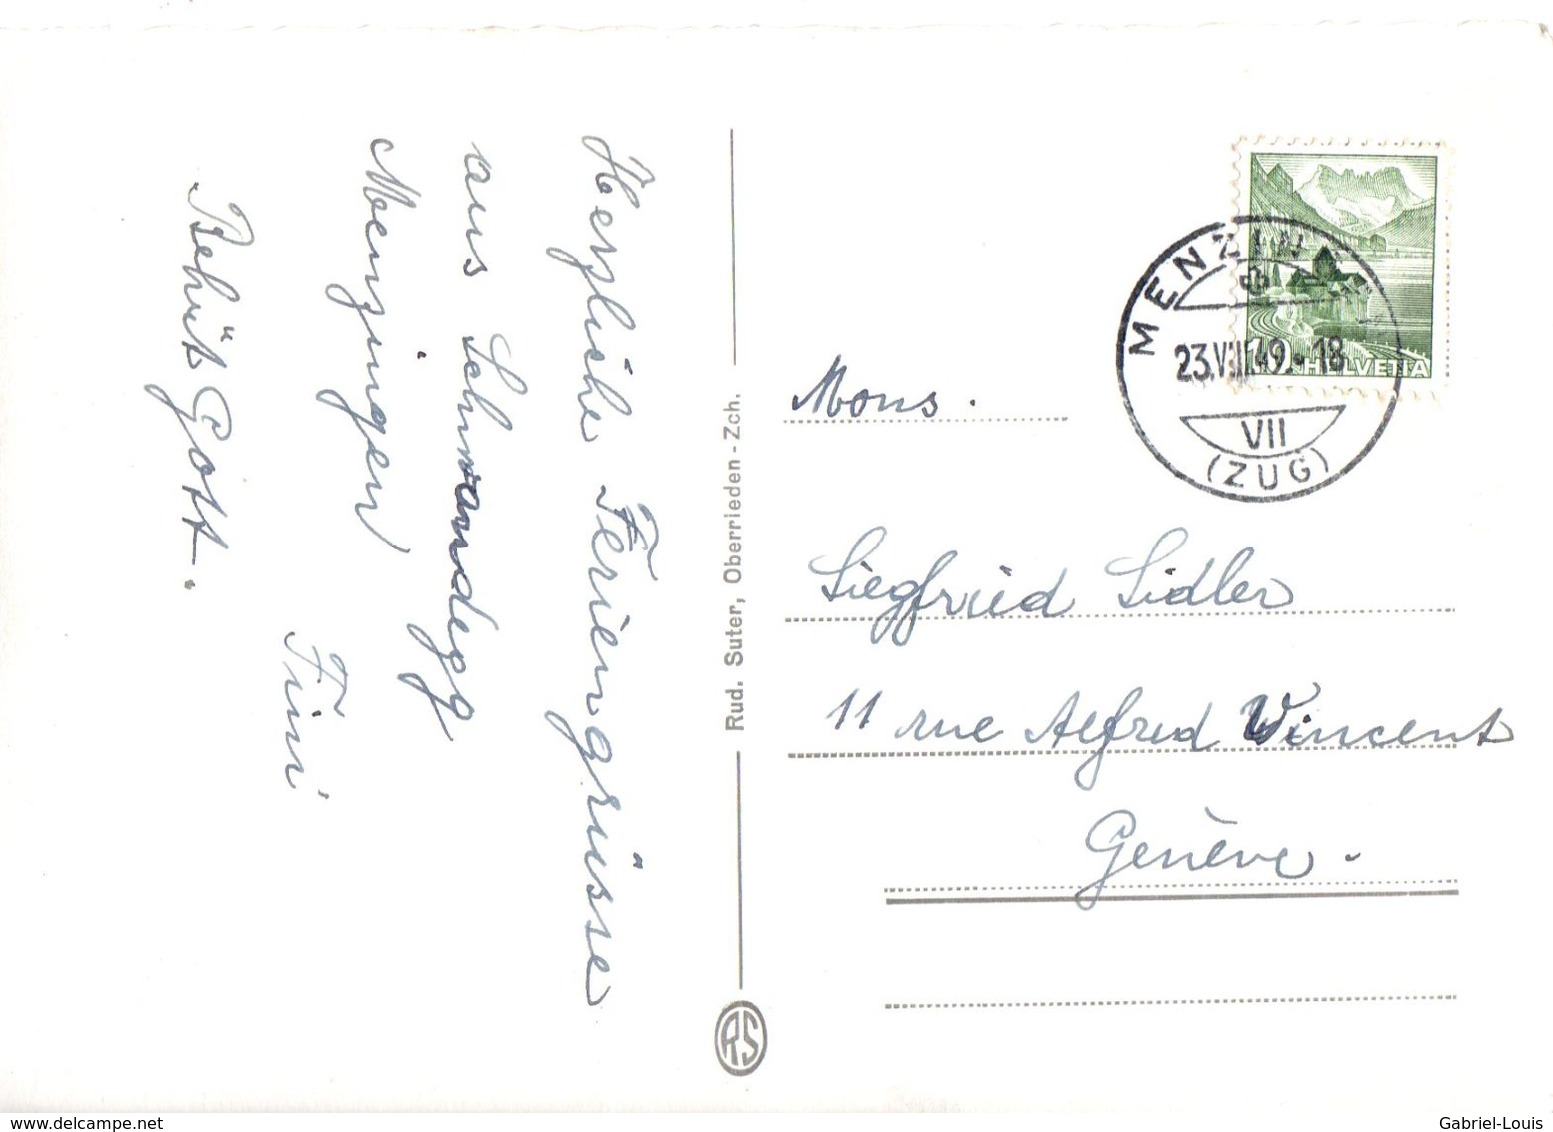 Herzliche Feriengrüsse
aus Schwandegg
Menzingen
Fini
Behüt Gott.
Rud. Suter, Oberrieden - Zch.
RS
MENZIN
23.VIII.49.-18
VII
(ZUG)
10 HELVETIA
Mons.
Siegfried Sidler
11 rue Alfred Vincent
Genève.
delcampe.net
Gabriel-Louis